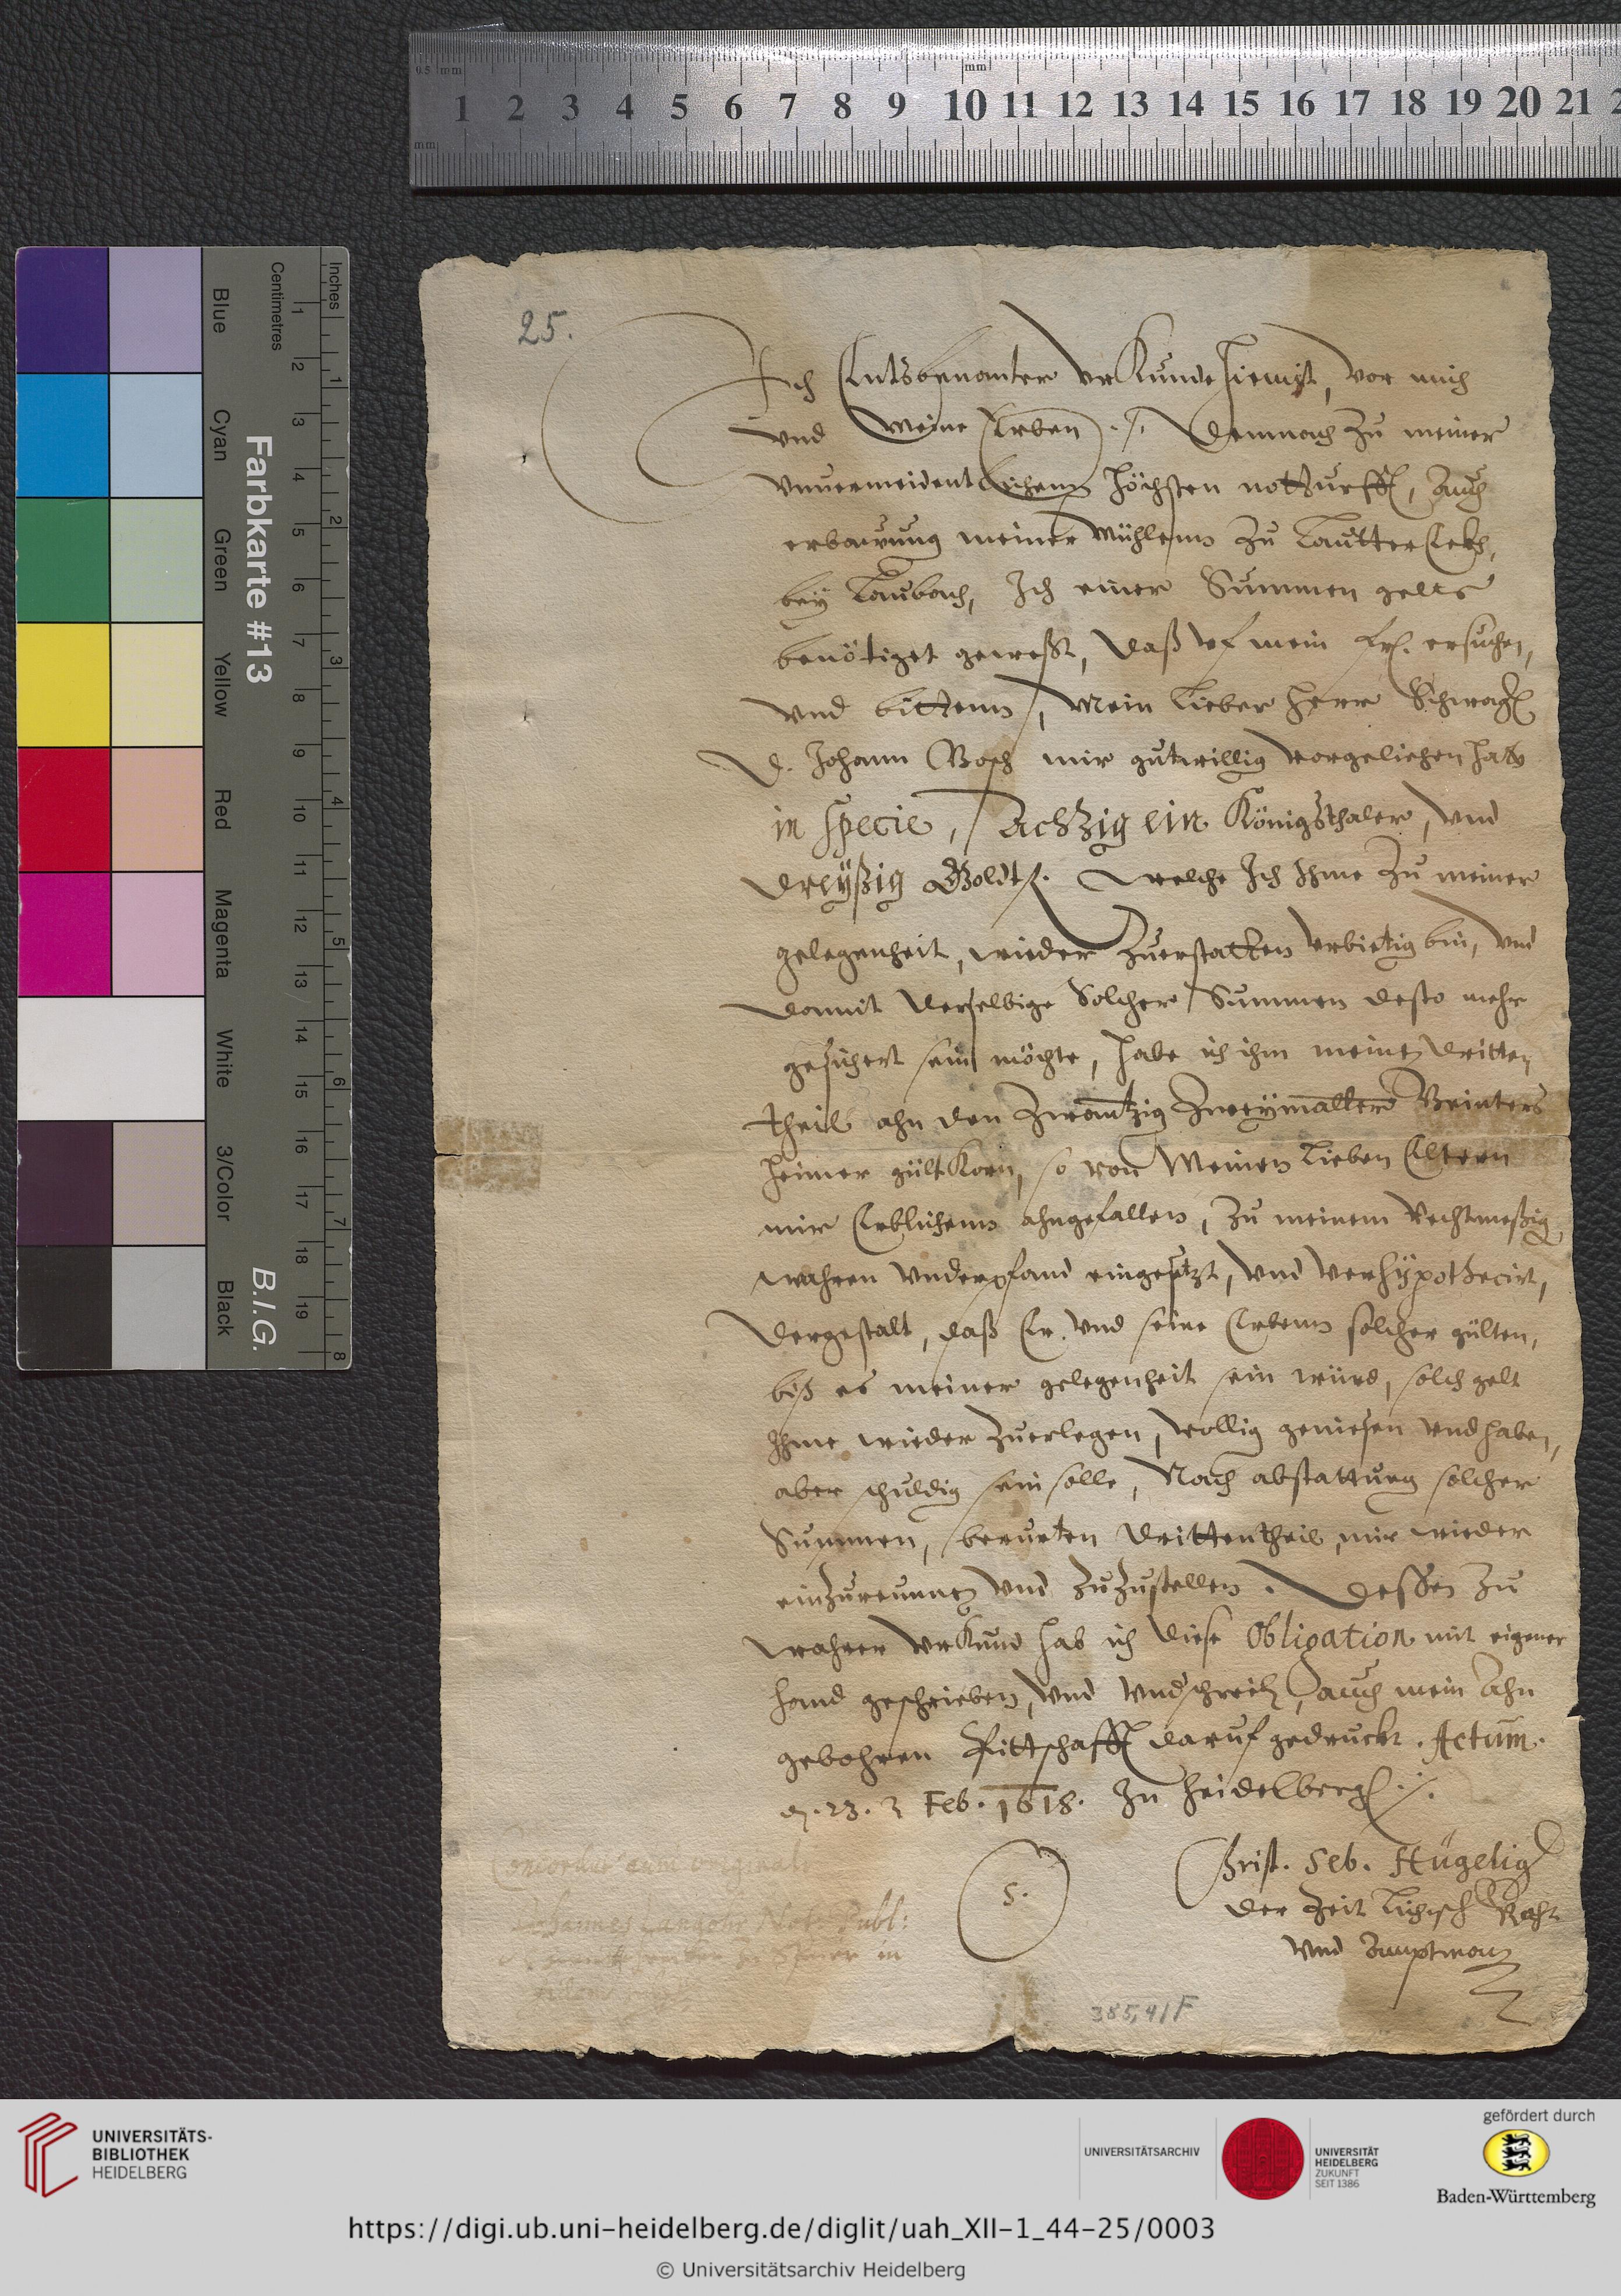 0.5 mm
mm
1 2 3 4 5 6 7 8 9 10 11 12 13 14 15 16 17 18 19 20 21 2
mm
Farbkarte #13
B.I.G.
Centimetres
Inches
1 2 3 4 5 6 7 8 9 10 11 12 13 14 15 16 17 18 19
1 2 3 4 5 6 7 8
Blue
Cyan
Green
Yellow
Red
Magenta
White
3/Color
Black
25.
Ich Entsbenanter urKunde hiemit, vor mich
und meine Erben ./. Demnach zu meiner
unuermeidentlichenn höchsten notturfft, auch
erbawung meiner Mühlenn zu Lautter
bey Laubach, Ich einer Summen gelts
benötiget geweßt, daß uf mein frl. ersuchen,
und bittenn, Mein lieber Herr Schwag
D. Johann Bosch mir gutwillig vorgeliehen hatt
in specie, Achtzig ein Königsthaler, und
dreyßig Goldtfl. welche Ich Ihme zu meiner
gelegenheit, wieder zuerstatten urbietig bin, und
damit derselbige Solcher Summen desto mehr
gesichert sein möchte, habe ich ihm meinen dritten
theil ahn den zwantzig zweymalter
heimer gült Korn, so von Meinen lieben Eltern
mir Erblichenn ahngefallen, zu meinem Rechtmeßig
wahren underpfand eingesetzt, und verhypothecirt,
dergestalt, daß Er und seine Erbenn solcher gülten,
biß es meiner gelegenheit sein würd, solch gelt
Ihme wieder zuerlegen, völlig geniesen und haben,
aber schuldig sein solle, Nach abstattung solcher
Summen, berürten drittentheil, mir wieder
einzureumen und zuzustellen. Dessen zu
wahrer urKund hab ich diese Obligation mit eigener
hand geschrieben, und underschrieb, auch mein Ahn
gebohren Pittschafft daruf gedruckt. Actum.
d. 23. Feb. 1618. zu Heidelberg ./.
Concordat cum originali
Johannes Not: Publ:
S.
Christ. Seb. Hügelig
der Zeit Raht
und Amptman
385,41F
UNIVERSITÄTS-
BIBLIOTHEK
HEIDELBERG
UNIVERSITÄTSARCHIV
UNIVERSITÄT
HEIDELBERG
ZUKUNFT
SEIT 1386
gefördert durch
Baden-Württemberg
https://digi.ub.uni-heidelberg.de/diglit/uah_XII-1_44-25/0003
© Universitätsarchiv Heidelberg